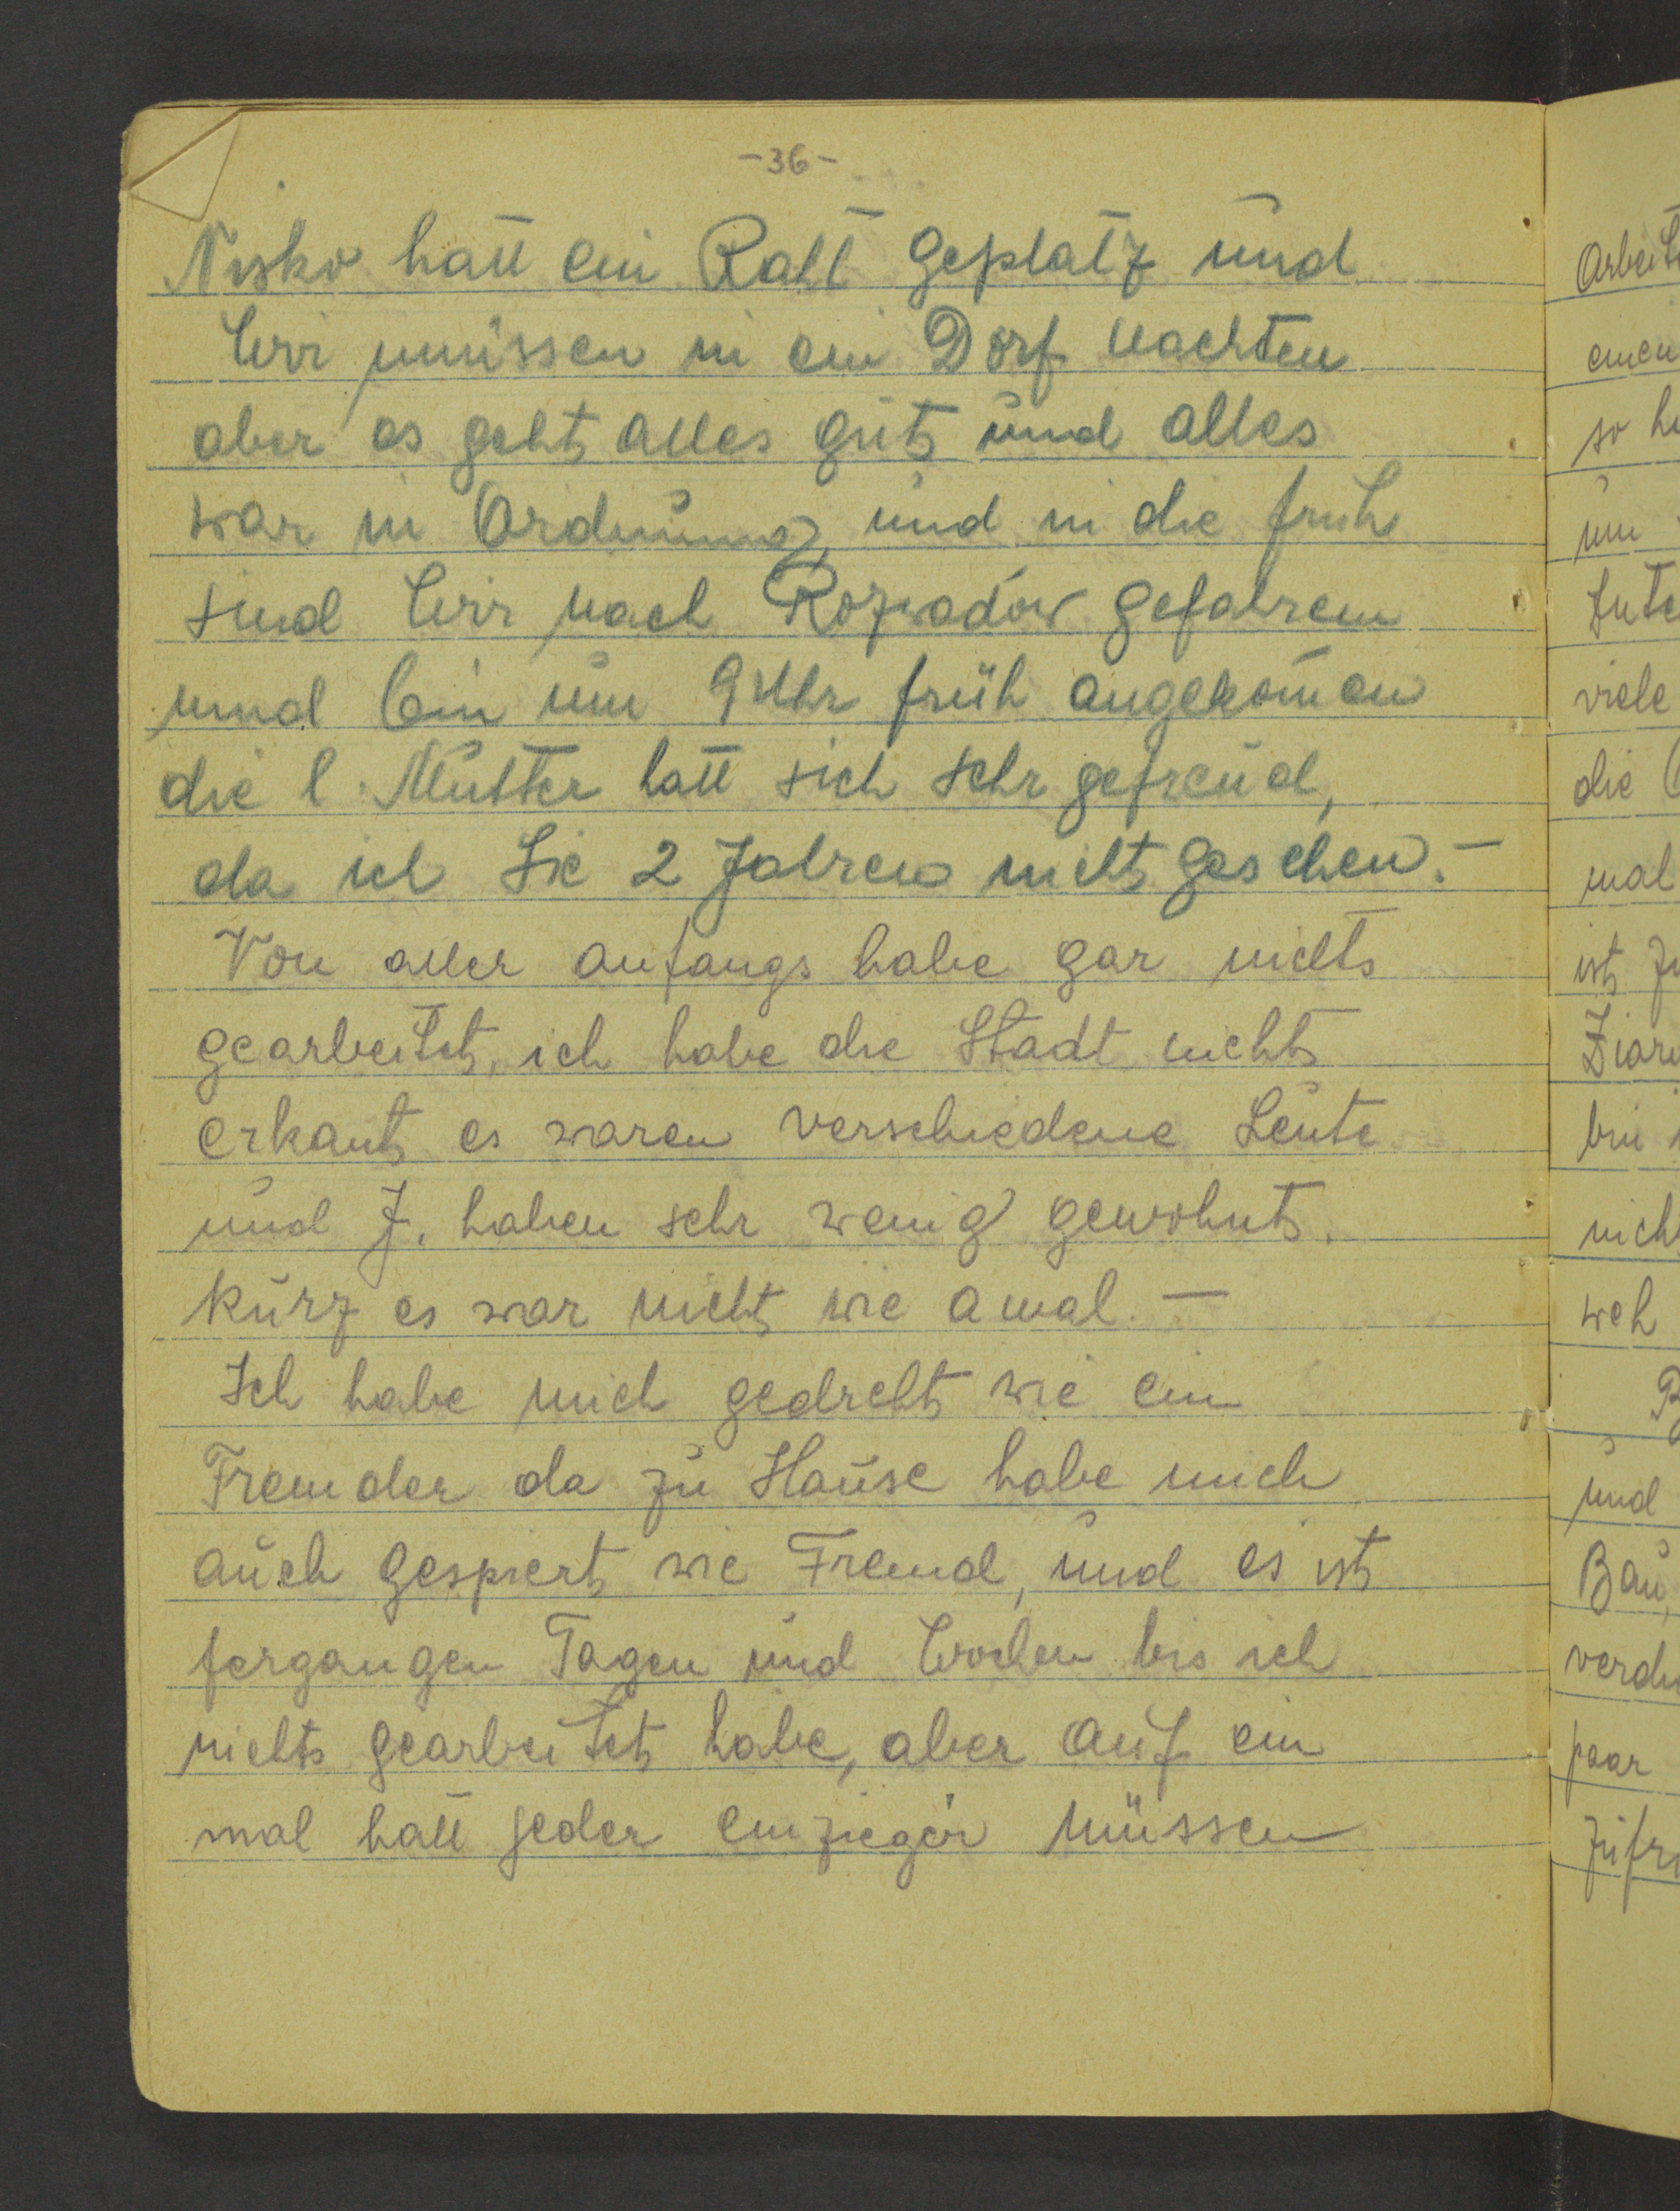 -36-
Nisko hatt ein Raht geplatz und
Wir müissen in ein Dorf nachten
aber es geht alles gut und alles
war in Ordnung und in die früh
sind Wir nach Rozwadów gefahren
und bin um 9 Uhr früh angekom̄en
die l. Mutter hatt sich sehr gefreud,
da ich Sie 2 Jahren nicht gesehen. -
Von aller anfangs habe gar nichts
gearbeitet, ich habe die Stadt nicht
erkant es waren verschiedene Leute
und J. haben sehr wenig gewohnt.
kurz es war nicht wie amal. -
Ich habe mich gedreht wie ein
Fremder da zu Hause habe mich
auch gespiert wie Fremd, und es ist
fergangen Tagen und Wochen bis ich
nichts gearbeitet habe, aber auf ein
mal hatt jeder einzieger müssen
einen
um
viele
die
mal
ist
nich
weh
und
Bau,
paar